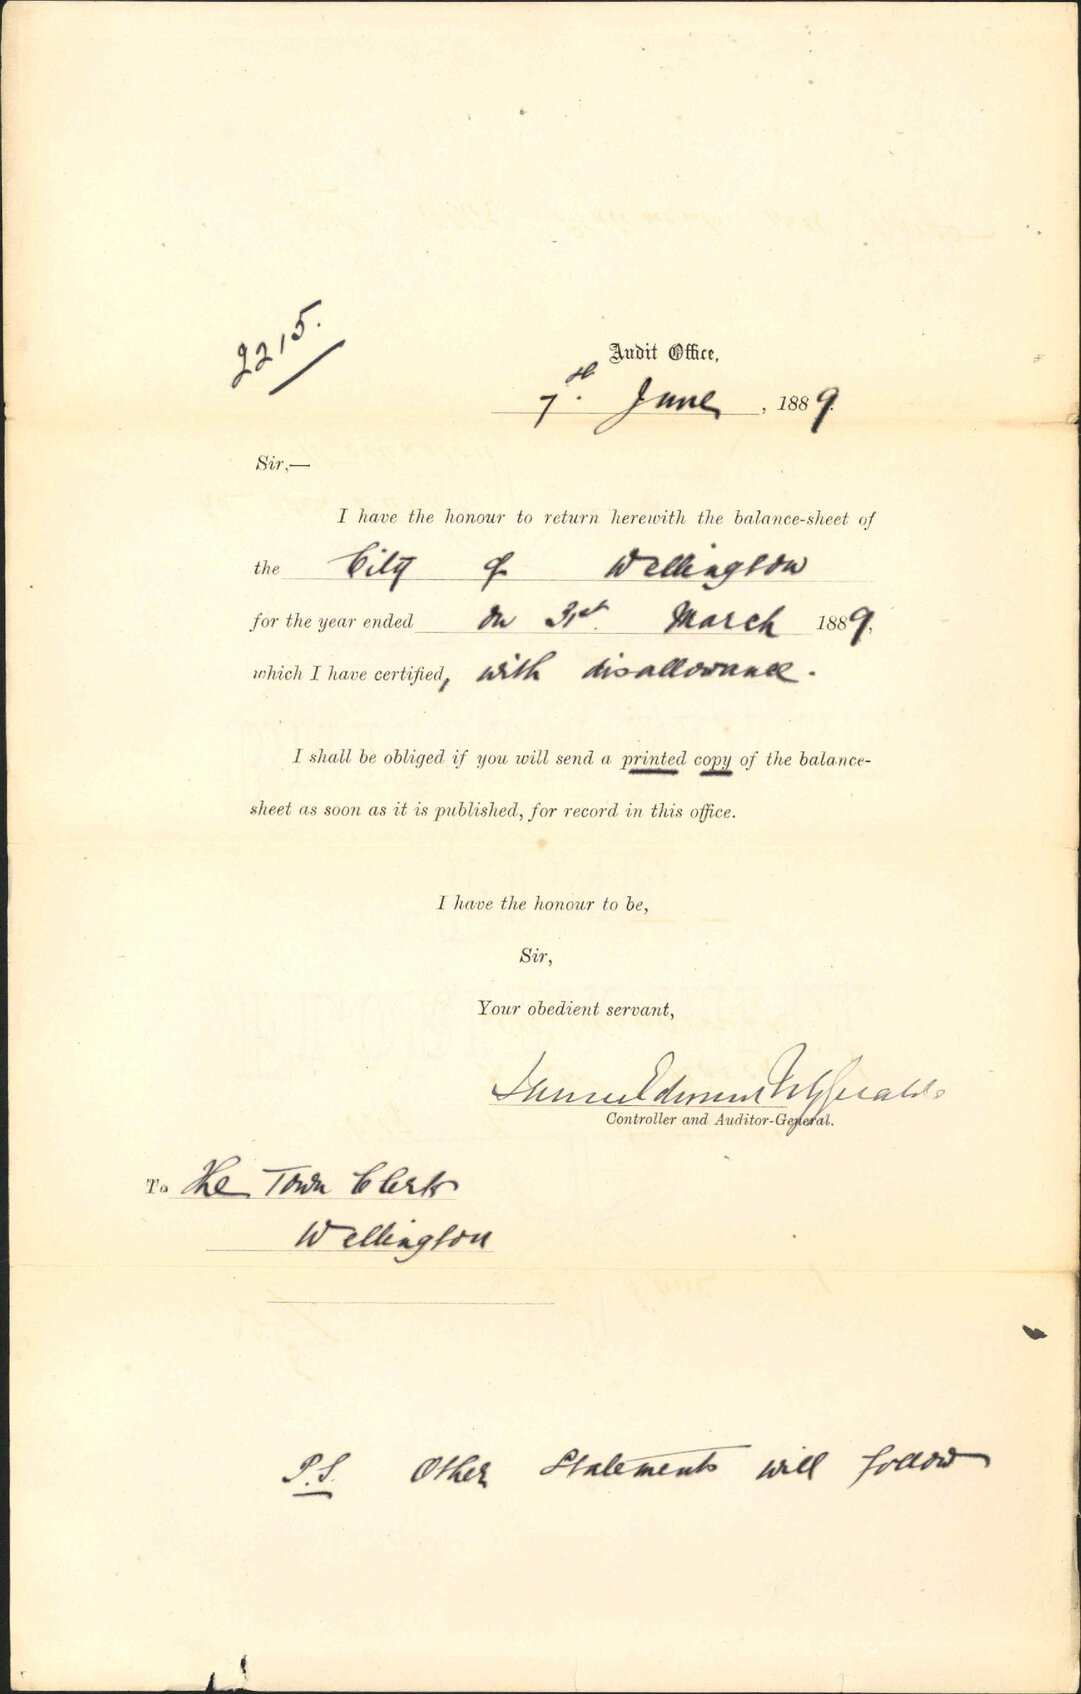 2215.
Audit Office,
7th. June, 1889.
Sir,—
I have the honour to return herewith the balance-sheet of
the City of Wellington
for the year ended on 31st. March 1889,
which I have certified, with disallowance.
I shall be obliged if you will send a printed copy of the balance-
sheet as soon as it is published, for record in this office.
I have the honour to be,
Sir,
Your obedient servant,
James Edward FitzGerald
Controller and Auditor-General.
To The Town Clerk
Wellington
P.S. Other Statements will follow